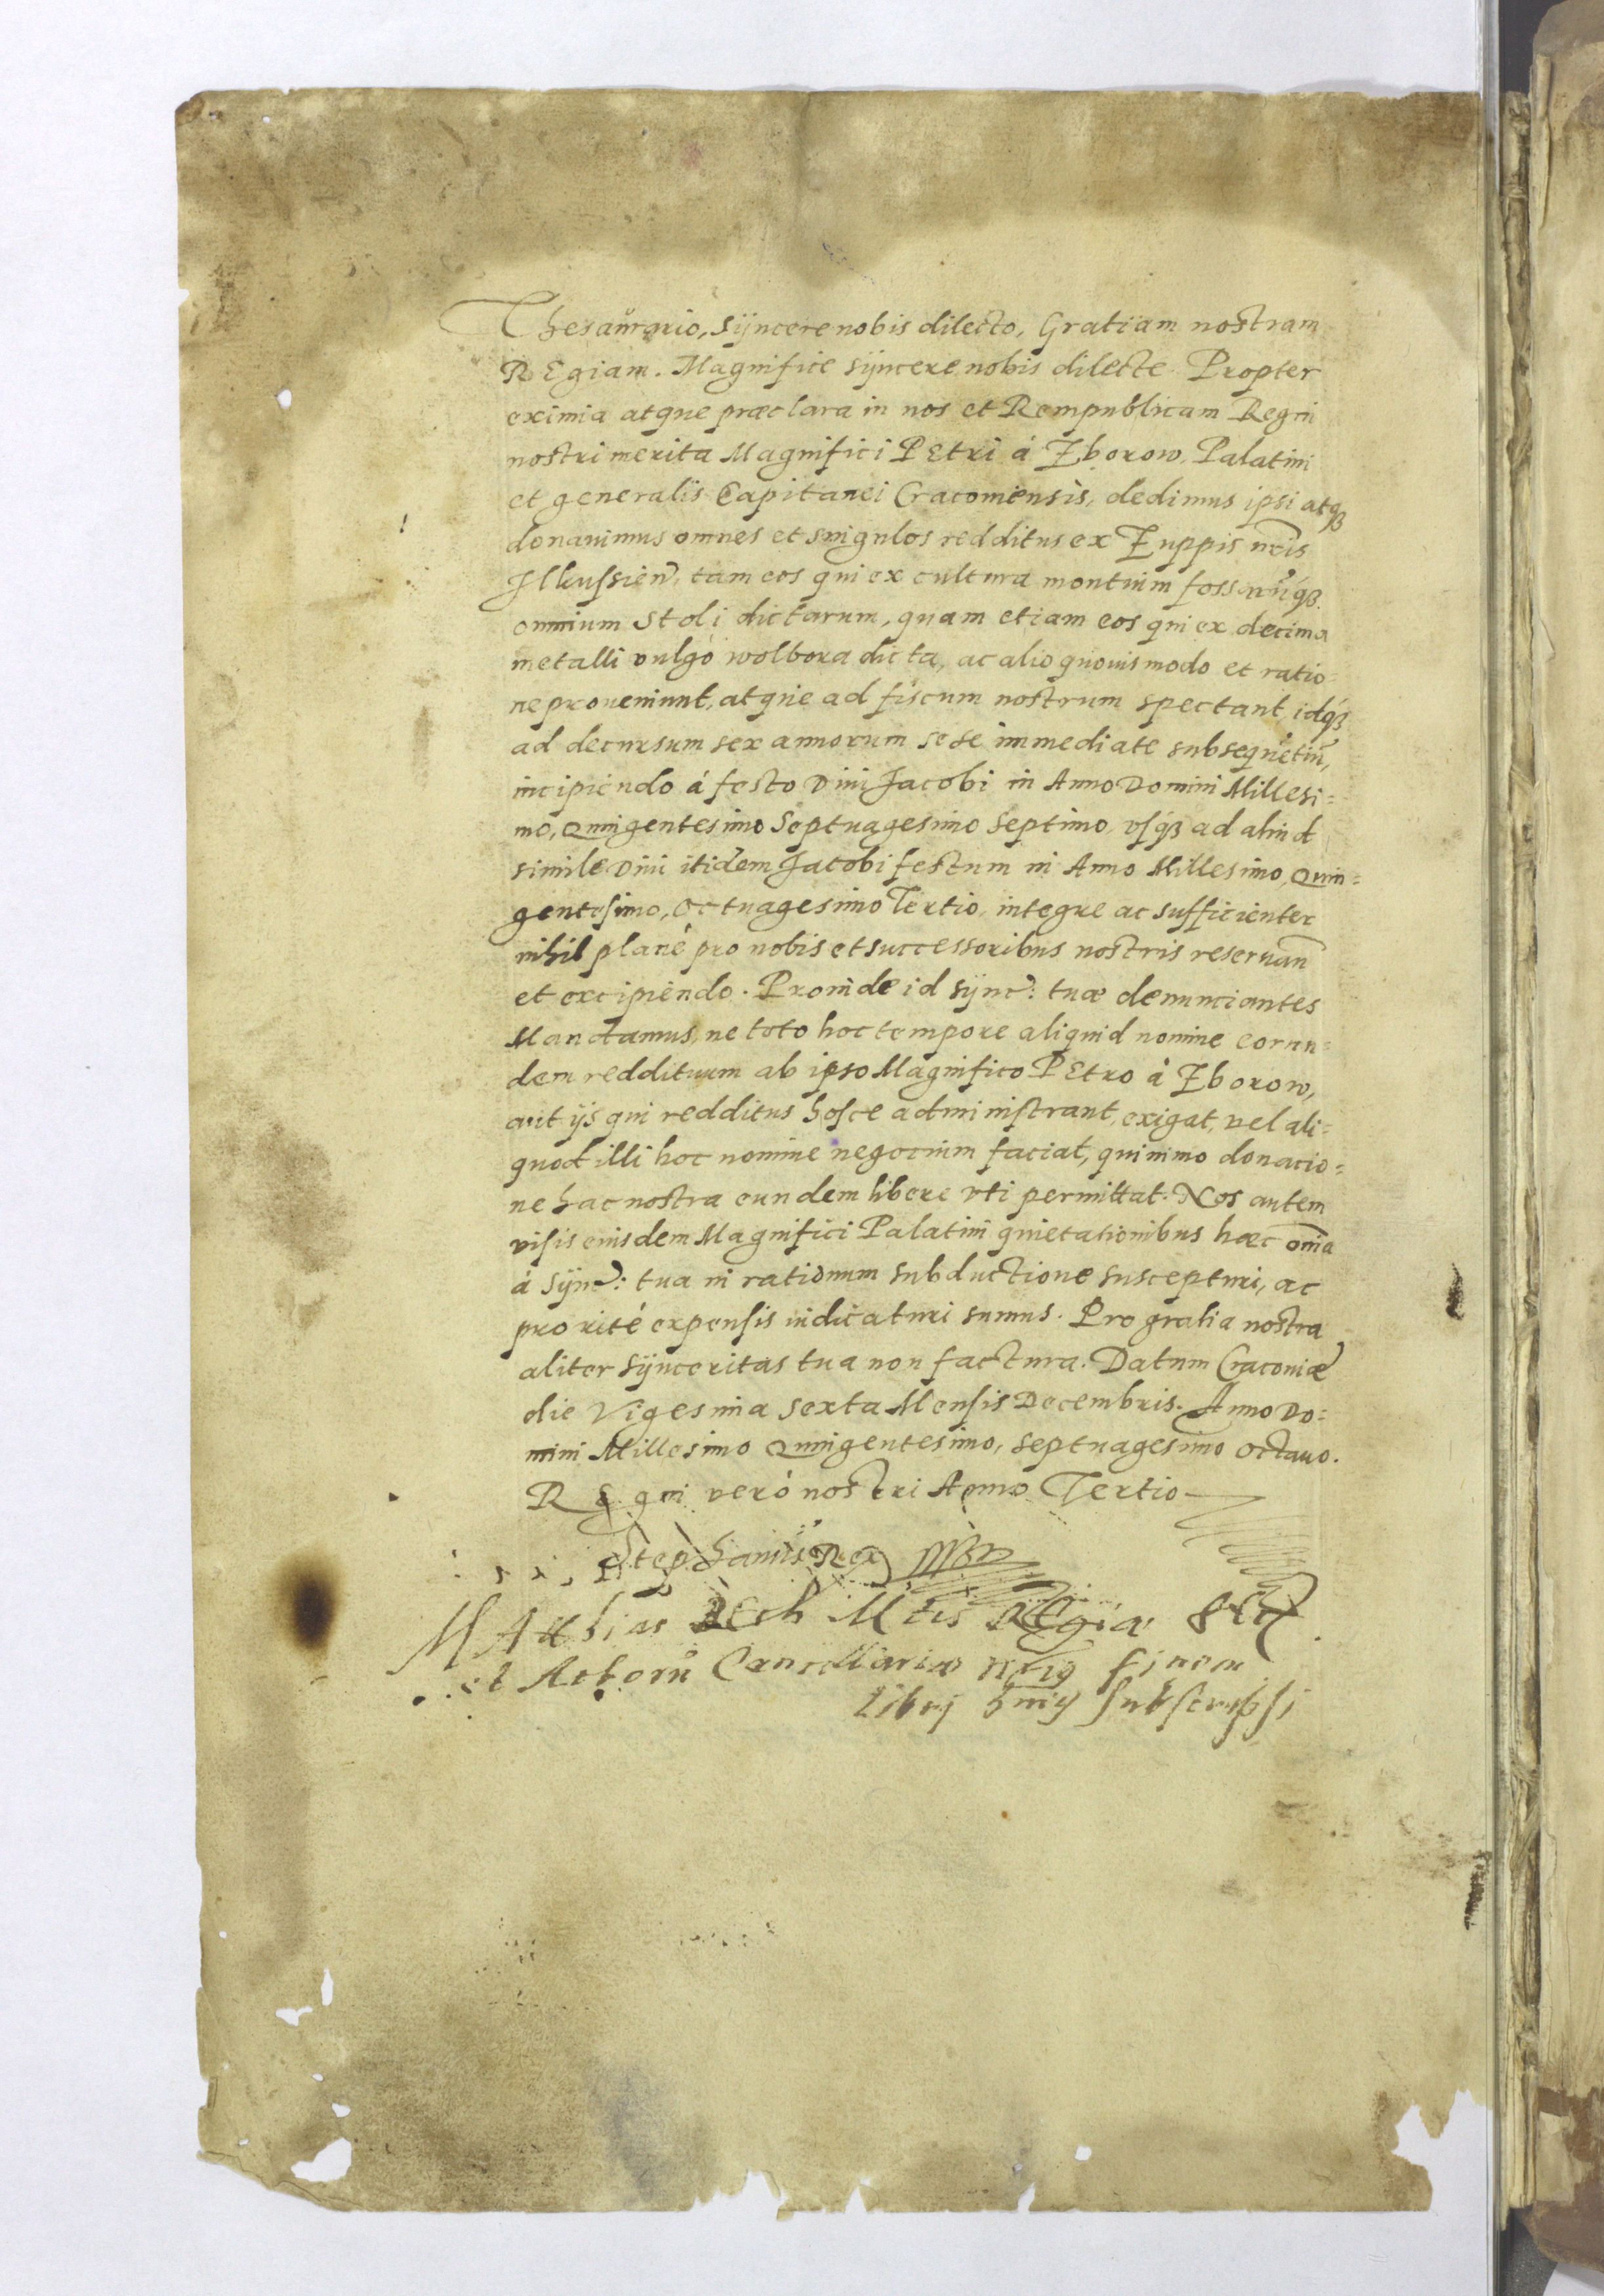 Thesaurario, Sÿncere nobis dilecto, Gratiam nostram
REgiam. Magnifice sÿncere nobis dilecte Propter
eximia atque præclara in nos et Rempublicam Regni
nostri merita Magnifici PEtri á Zborow, Palatini
et generalis Capitanei Cracouiensis, dedimus ipsi atqȝ
donauimus omnes et singulos redditus ex Zuppis nr̃is
Ilkussien̄, tam eos qui ex cultura montium fossarūqȝ
omnium Stoli dictarum, quam etiam eos qui ex decima
metalli vulgò wolbora dicta, ac alio quouis modo et ratio=
ne proueniunt, atque ad fiscum nostrum spectant, idqȝ
ad decursum sex annorum sese immediate subsequētiū,
incipiendo á festo Diui Jacobi in Anno Domini Millesi=
mo, Quingentesimo Septuagesimo Septimo, vsqȝ ad aliud
simile Diui itidem Jacobi festum in Anno Millesimo, Quin=
gentesimo, Octuagesimo Tertio, integre ac sufficienter
nihil planè pro nobis et successoribus nostris reseruan̄
et excipiendo. Proinde id sÿnc̄: tuæ denunciantes
Mandamus, ne toto hoc tempore aliquid nomine eorun=
dem reddituum ab ipso Magnifico PEtro à Zborow,
aut ijs qui redditus hosce administrant, exigat, vel ali=
quod illi hoc nomine negocium faciat, quinimo donacio=
ne hac nostra eundem libere vti permittat. Nos autem
visis eiusdem Magnifici Palatini quietationibus hæc om̄ia
á Sÿnc̄: tua in rationum subductione suscepturi, ac
pro rité expensis iudicaturi sumus. Pro gratia nostra
aliter sÿnceritas tua non factura. Datum Cracouiæ
die Vigesima Sexta Mensis Decembris. Anno Do=
mini Millesimo Quingentesimo, Septuagesimo octauo.
REgni veró nostri Anno Tertio
Stephanus Rex
MAthias Mtis REgiæ
et Actorū Cancellariæ finem
Librj huiꝯ subscripsi